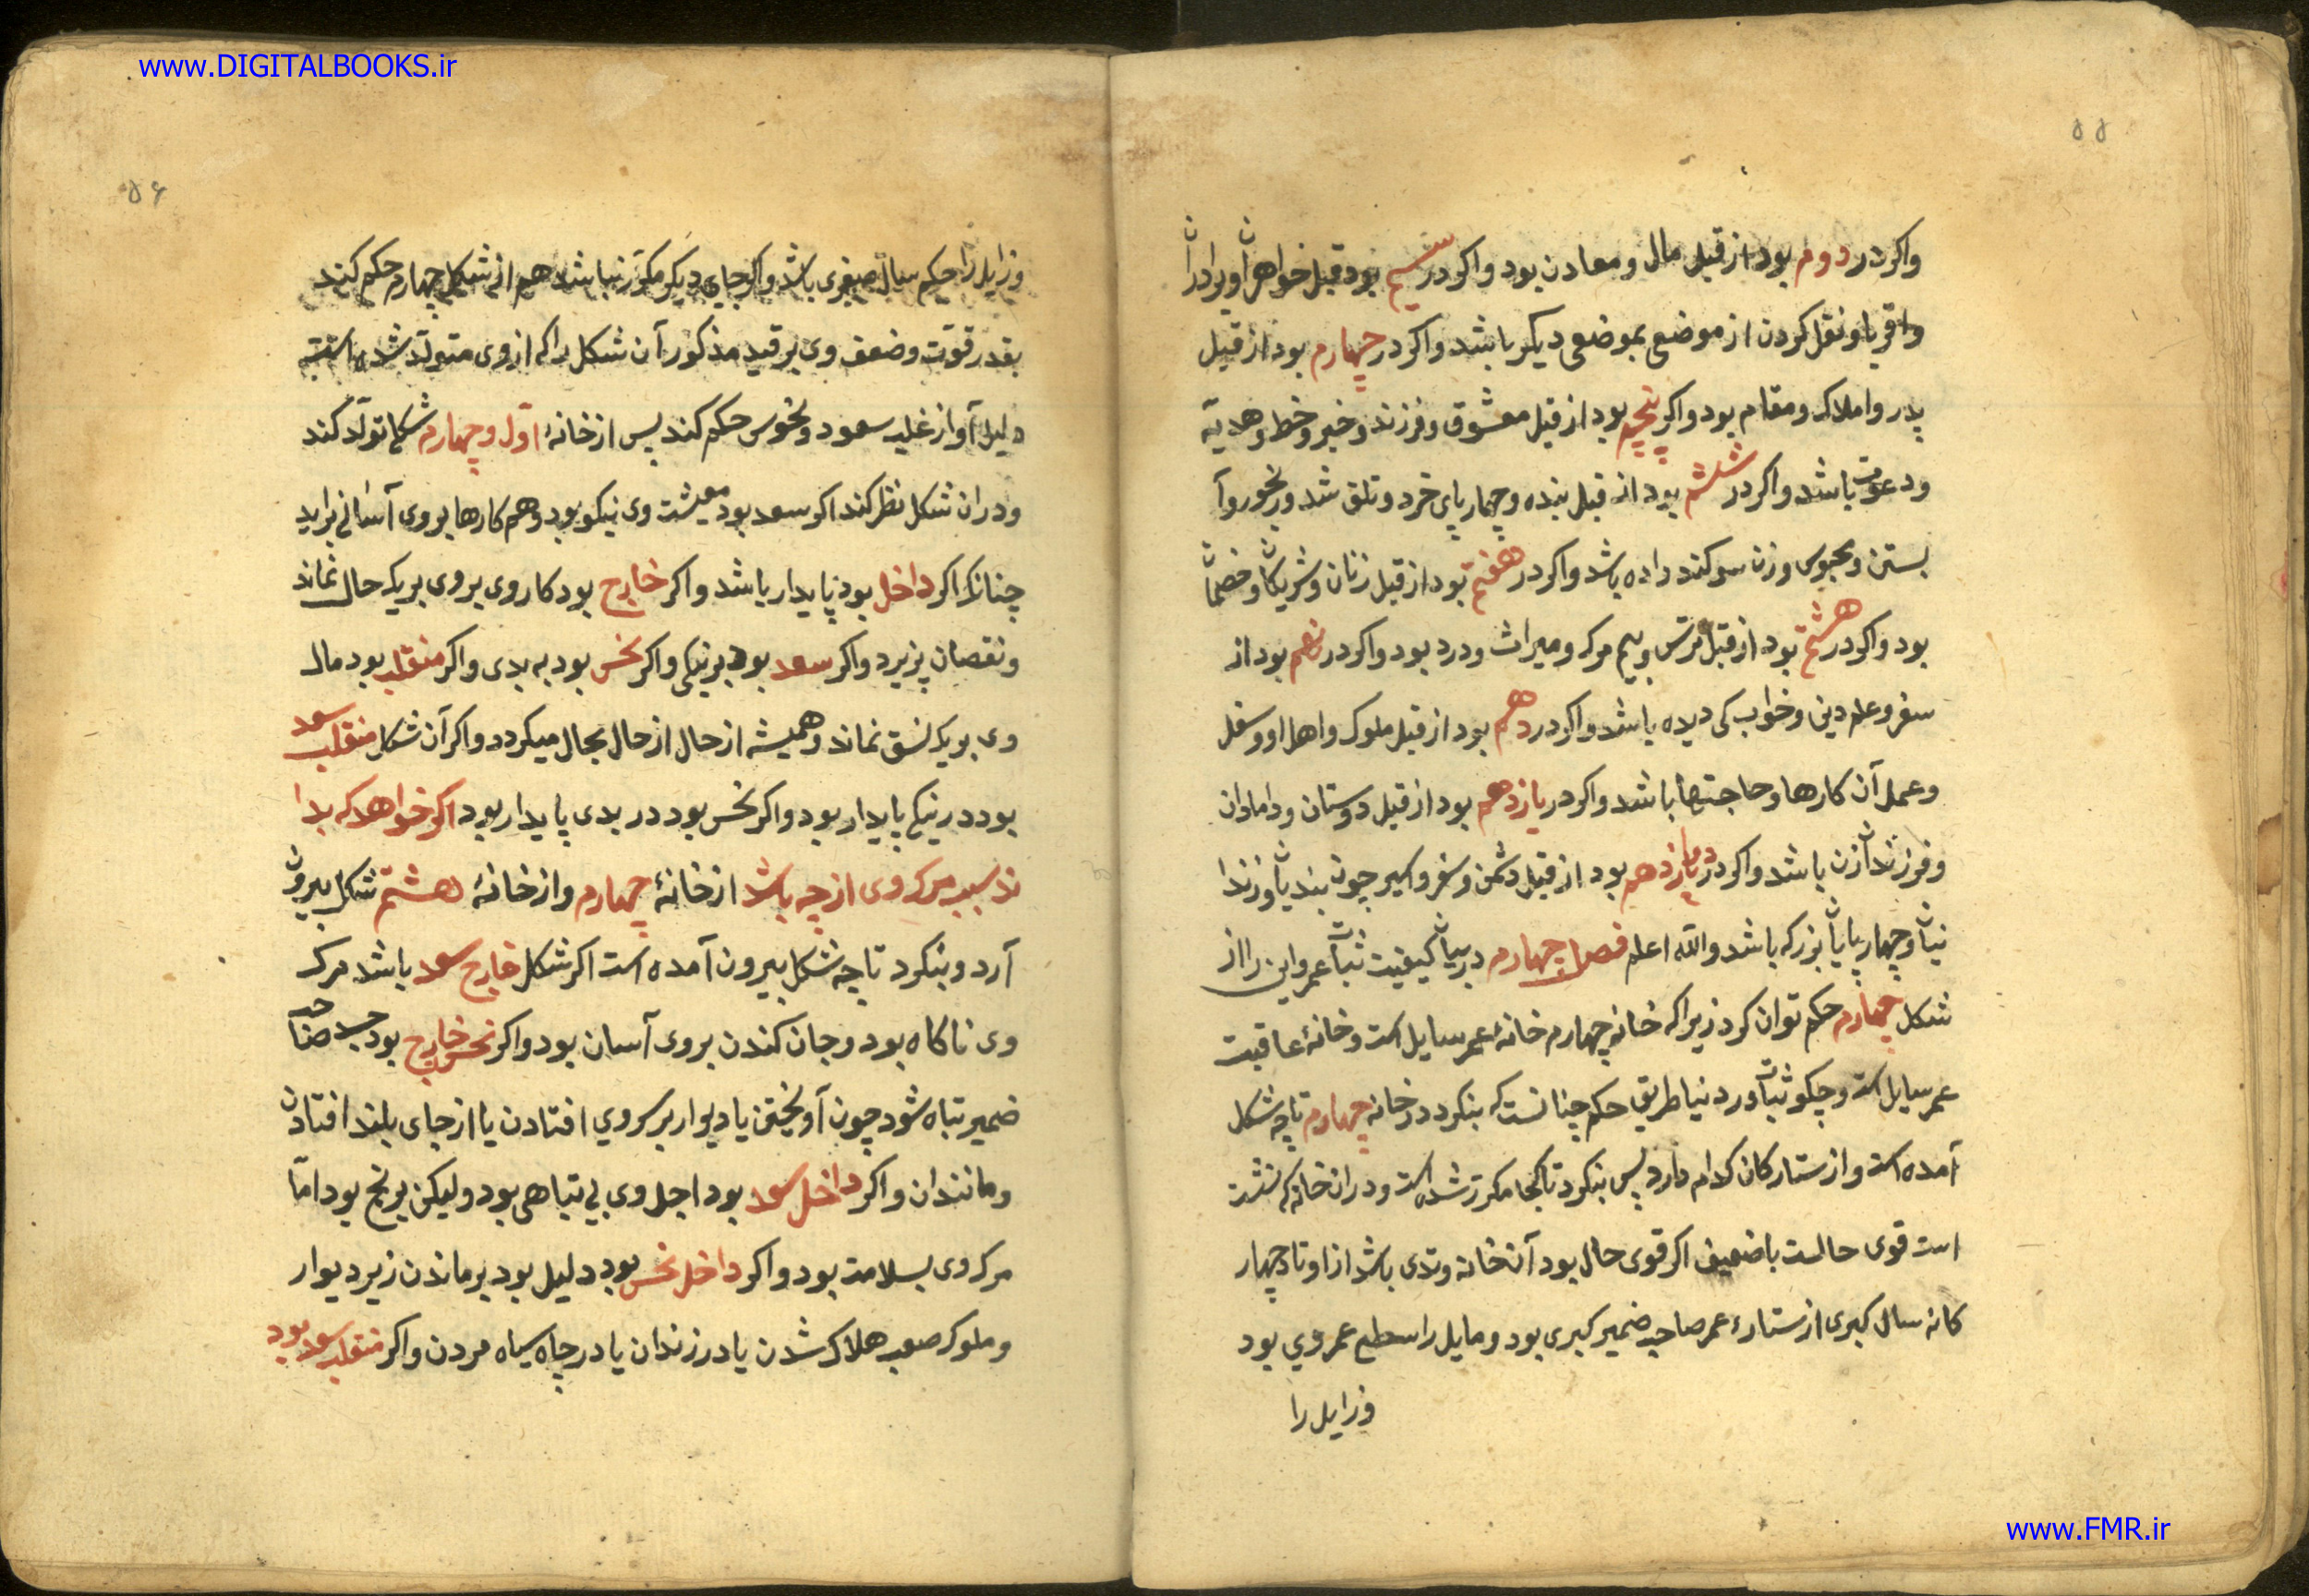 www.DIGITALBOOKS.ir
۵۵
واکر در دوم بود از قبل مال و معادن بود واکر در سیم بود قبل خواهران و برادران
واقربا و نقل کردن از موضعی بموضعی دیکر باشد واکر در چهارم بود از قبل
پدر و املاک و مقام بود واکر پنجم بود از قبل معشوق و فرزند و خبر و خط و هدیه
ودعوت باشد واکر در ششم بود از قبل بنده و چهارپای خرد و تلق شد ورنجور و آ
بستن و محبوس وزن سوکند داده باشد واکر در هفتم بود از قبل زنان و شریکان و خصمان
بود واکر در هشتم بود از قبل ترس وبیم مرک و میراث و درد بود واکر در نهم بود از
سفر و علم دین و خواب کی دیده باشد واکر در دهم بود از قبل ملوک و اهل او و سفل
وعمل آن کارها و حاجتها باشد واکر در یازدهم بود از قبل دوستان و دامادان
وفرزندان زن باشد واکر در دوازدهم بود از قبل دشمن و سفر و اسیر چون بندیان و زندا
نیان و چهارپایان بزرک باشد والله اعلم فصل چهارم در بیان کیفیت ثبات عمر و این را از
شکل چهارم حکم توان کرد زیرا که خانه چهارم خانهٔ عمر سایل است و خانهٔ عاقبت
عمر سایل است و چکو ثبات در دنیا طریق حکم چنانست که بنکرد در خانه چهارم تا چه شکل
آمده است و از ستارکان کدام دارد پس بنکرد تا کجا مکرر شده است و در ان خانه که نشسته
است قوی حالست یا ضعیف اکر قوی حال بود آن خانه وتدی باشد از اوتاد چهار
کانه سال کبری از ستارهٔ عمر صاحب ضمیر کبری بود و مایل را سطیع عمر وی بود
وزایل را
۵۶
وزایل را حکم سال صغری باشد واکر جای دیکر مکرر نباشد هم از شکل چهارم حکم کند
بقدر قوت وضعف وی برقید مذکور آن شکل را که از وی متولد شده است
دلیل آواز غلبه سعود و نحوس حکم کند پس از خانهٔ اول و چهارم شکل تولد کند
ودران شکل نظر کند اکر سعد بود معیشت وی نیکو بود وهم کارها بروی آسانی براید
چنانک اکر داخل بود پایدار باشد واکر خارج بود کار وی بروی بریک حال نماند
ونقصان پزیرد واکر سعد بود برنیکی واکر نحس بود به بدی واکر منقلب بود مال
وی بریک نسق نماند وهمیشه از حال از حال بحال میکردد واکر آن شکل منقلب سعد
بود در نیکی پایدار بود واکر نحس بود در بدی پایدار بود اکر خواهد که بدا
ند سبب مرک وی از چه باشد از خانهٔ چهارم واز خانهٔ هشتم شکل بیرون
آرد و بنکرد تا چه شکل بیرون آمده است اکر شکل خارج سعد باشد مرک
وی ناکاه بود و جان کندن بروی آسان بود واکر نحس خارج بود جسد صاحب
ضمیر تباه شود چون آویختن یا دیوار بر سر وی افتادن یا از جای بلند افتادن
ومانند ان واکر داخل سعد بود اجل وی بی تباهی بود ولیکن برنج بود اما
مرک وی بسلامت بود واکر داخل نحس بود دلیل بود برماندن زیر دیوار
وملوک صعب هلاک شدن یا در زندان یا در چاه سیاه مردن واکر منقلب سعد بود
www.FMR.ir